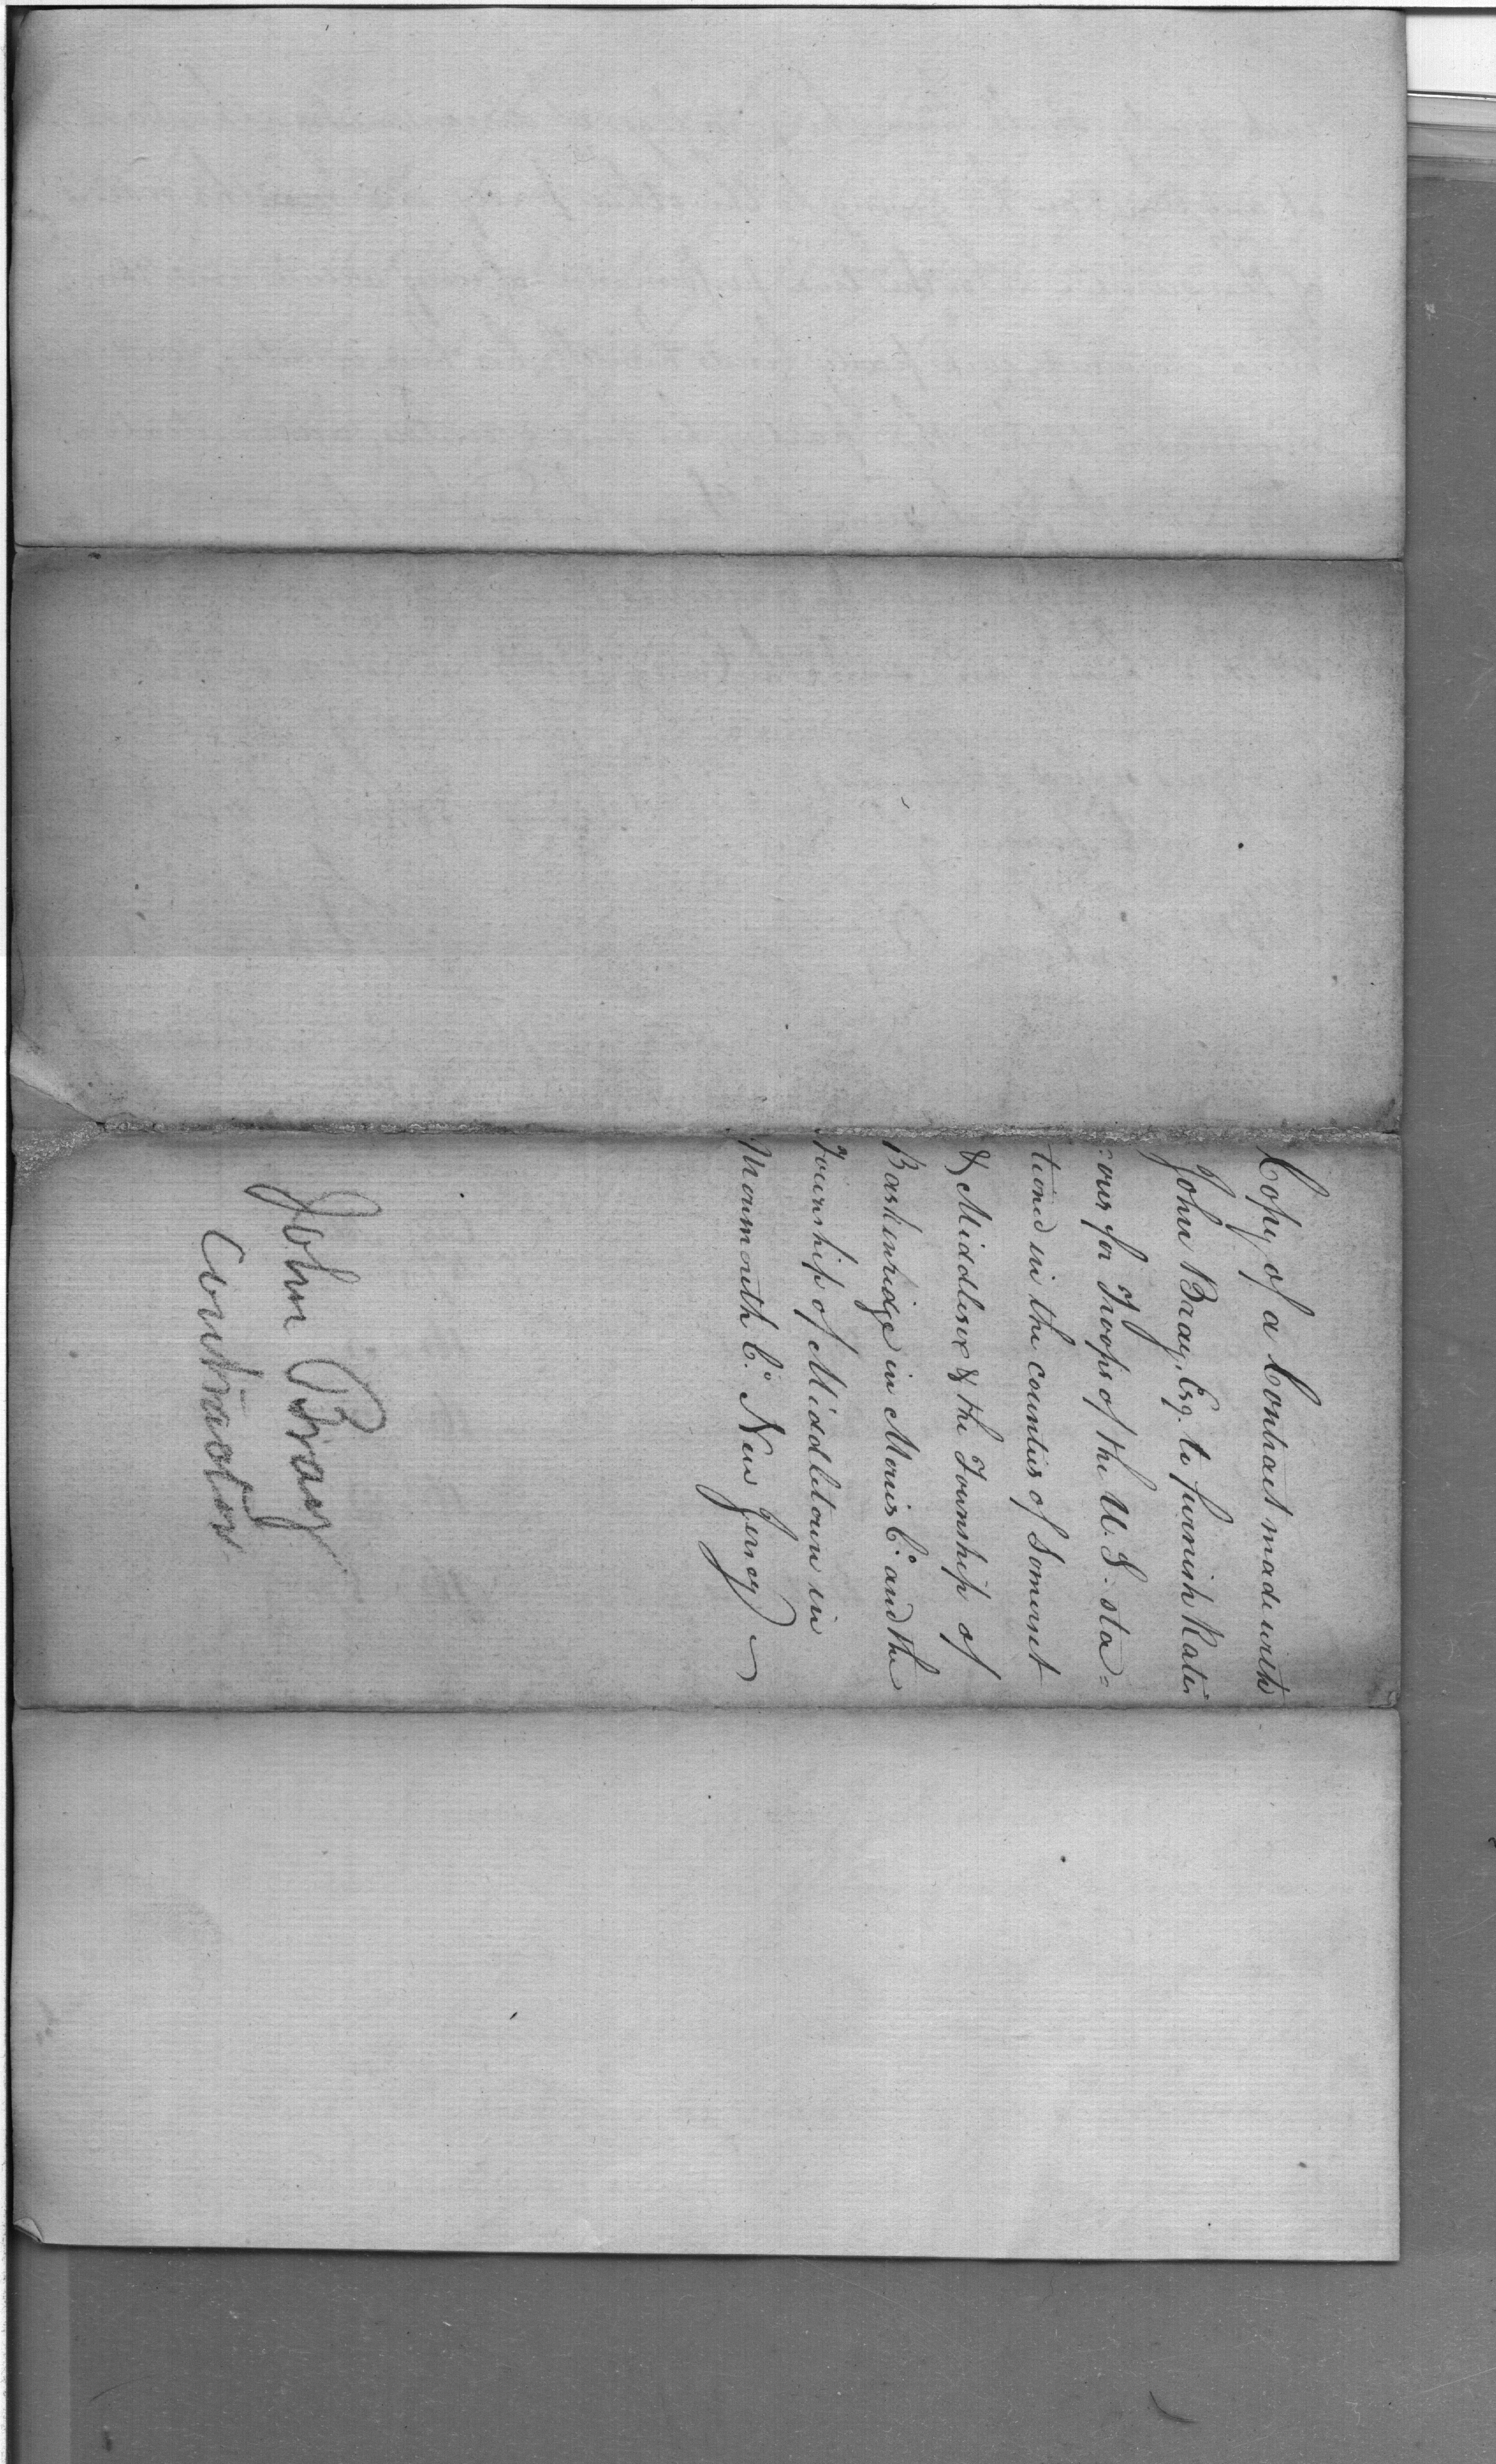 Copy of a Contract made with
John Bray, Esq. to furnish Rati
:ons for Troops of the U.S. sta=
tioned in the counties of Somerset
& Middlesex & the Township of
Baskinridge in Morris Co. and the
Township of Middletown in
Monmouth Co. New Jersey
John Bray
Contractor